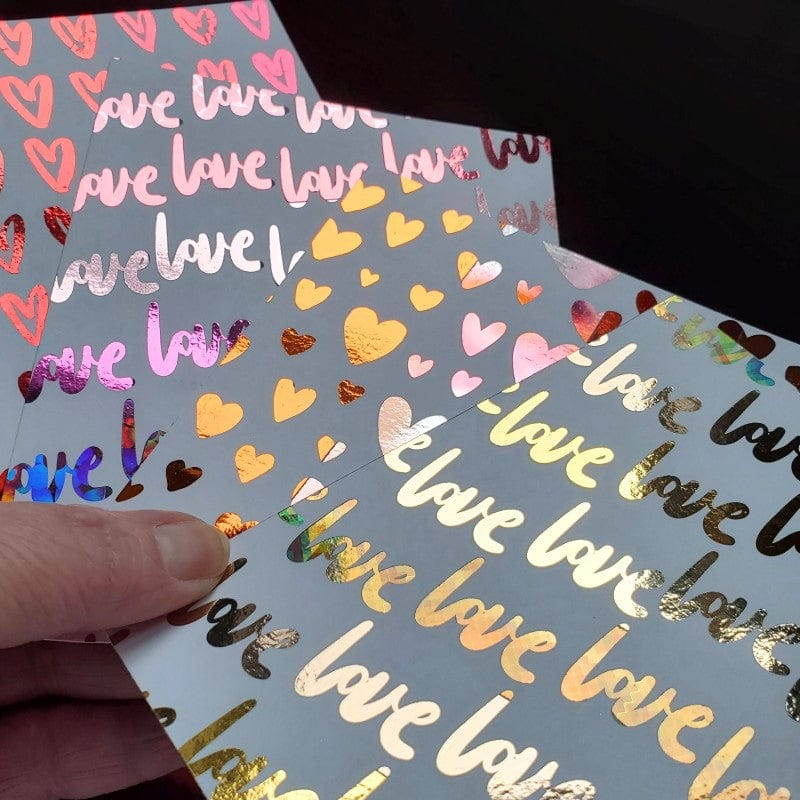 ove love love
ove love love love love
ove love l
ove love
ove l
love
e love love
e love love
e love love love
love love love love
love love love love